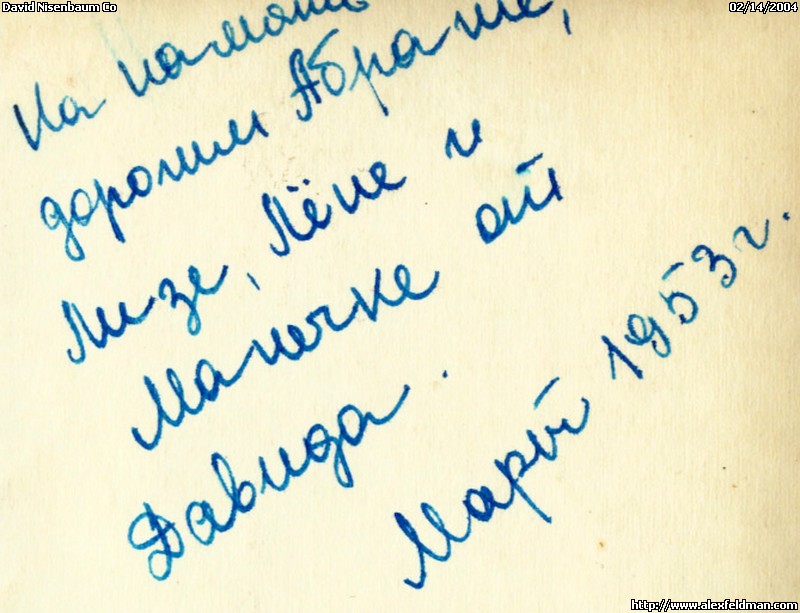 David Nisenbaum Co
02/14/2004
На память
дорогим Абраше,
Лизе, Лёне и
Манечке от
Давида.
Март 1953 г.
http://www.alexfeldman.com